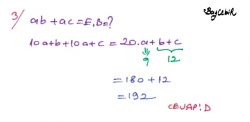 3) ab + ac = E.B = ?
10a+b+10a+c = 20.a+b+c
9 12
= 180 + 12
= 192
CEVAP: D